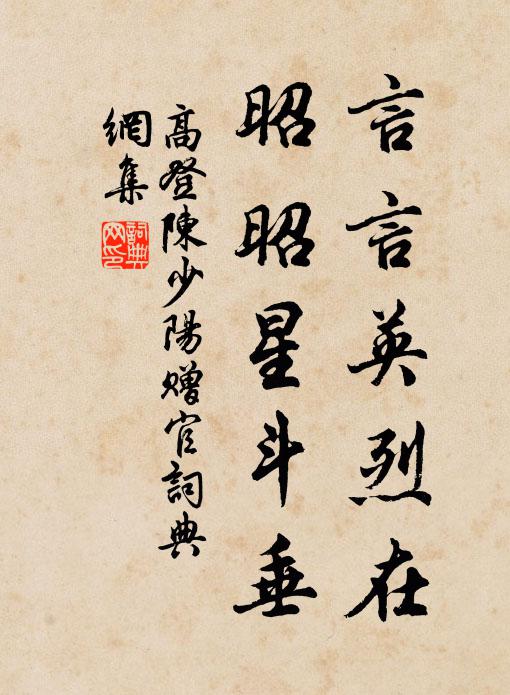 言言英烈在
昭昭星斗垂
高登陳少陽贈官詞典
網集
詞典网印